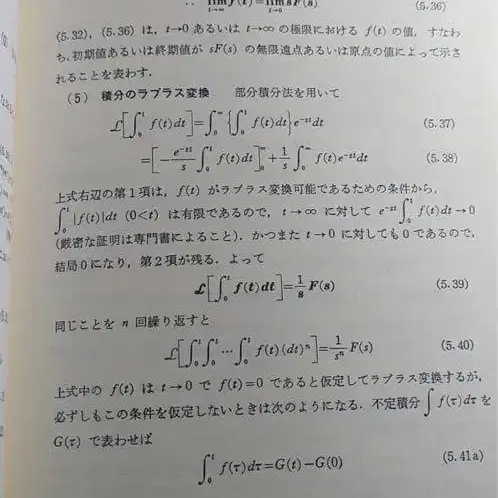 ∴ lim_{t→∞} f(t)=lim_{s→0} sF(s) (5.36)
(5.32), (5.36) は, t→0 あるいは t→∞ の極限における f(t) の値, すなわ
ち, 初期値あるいは終期値が sF(s) の無限遠点あるいは原点の値によって示さ
れることを表わす.
(5) 積分のラプラス変換 部分積分法を用いて
ℒ[∫_0^t f(t)dt]=∫_0^∞{∫_0^t f(t)dt}e^{-st}dt (5.37)
=[-e^{-st}/s ∫_0^t f(t)dt]_0^∞+1/s ∫_0^∞ f(t)e^{-st}dt (5.38)
上式右辺の第1項は, f(t) がラプラス変換可能であるための条件から,
∫_0^t |f(t)|dt (0<t) は有限であるので, t→∞ に対して e^{-st}∫_0^t f(t)dt→0
(厳密な証明は専門書によること). かつまた t→0 に対しても0であるので,
結局0になり, 第2項が残る. よって
ℒ[∫_0^t f(t)dt]=1/s F(s) (5.39)
同じことを n 回繰り返すと
ℒ[∫_0^t∫_0^t∫_0^t…∫_0^t f(t)(dt)^n]=1/s^n F(s) (5.40)
上式中の f(t) は t→0 で f(t)=0 であると仮定してラプラス変換するが,
必ずしもこの条件を仮定しないときは次のようになる. 不定積分∫f(τ)dτ を
G(τ) で表わせば
∫_0^t f(τ)dτ=G(t)-G(0) (5.41a)